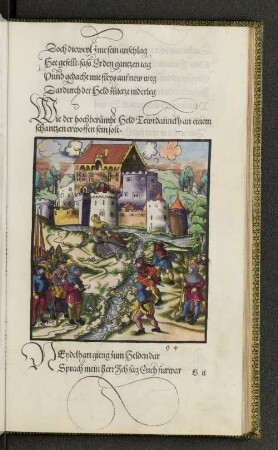 Doch dieweyl Ime sein anschlag
Het gefelt saß Er den gantzen tag
Vnnd gedacht mit fleyß auf new weg
Dardurch der Held
Wie der hochberümbt Held Tewrdannckh an einem
schantzen erpossen sein solt.
94
Neydelhart gieng zum Helden dar
Sprach mein Herr Ich sag Euch fürwar